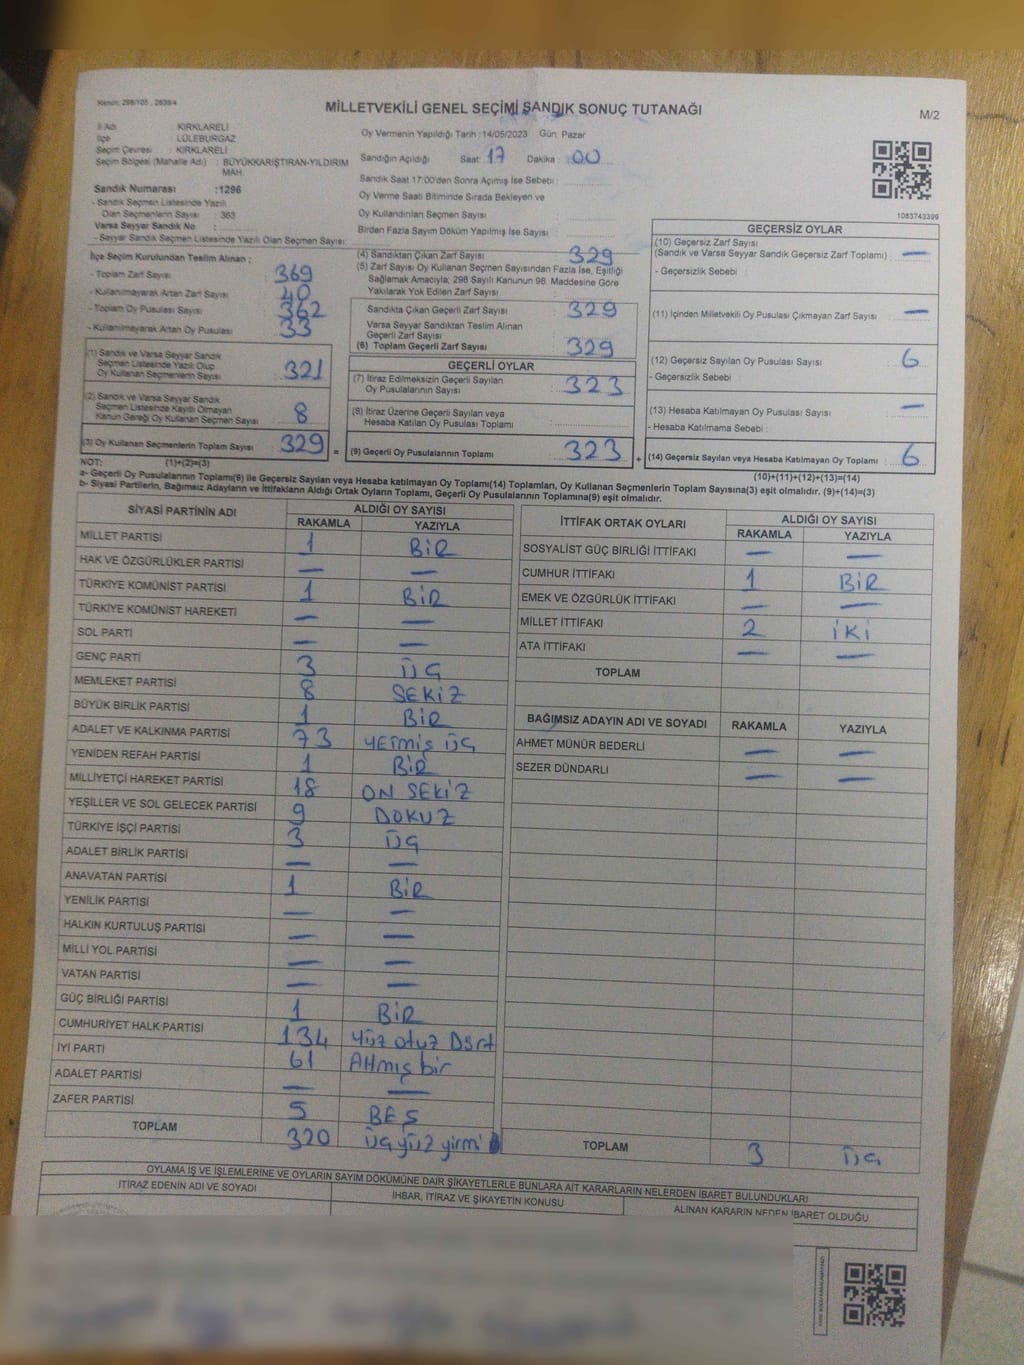 Kanun: 298/105, 2839/4
MİLLETVEKİLİ GENEL SEÇİMİ SANDIK SONUÇ TUTANAĞI
M/2
İl Adı : KIRKLARELİ
İlçe : LÜLEBURGAZ
Seçim Çevresi : KIRKLARELİ
Seçim Bölgesi (Mahalle Adı) : BÜYÜKKARIŞTIRAN-YILDIRIM MAH.
Sandık Numarası :1296
- Sandık Seçmen Listesinde Yazılı
Olan Seçmenlerin Sayısı : 363
Varsa Seyyar Sandık No :
- Seyyar Sandık Seçmen Listesinde Yazılı Olan Seçmen Sayısı:
Oy Vermenin Yapıldığı Tarih :14/05/2023 Gün: Pazar
Sandığın Açıldığı Saat: 17 Dakika : 00
Sandık Saat 17:00'den Sonra Açılmış İse Sebebi :
Oy Verme Saati Bitiminde Sırada Bekleyen ve
Oy Kullandırılan Seçmen Sayısı :
Birden Fazla Sayım Döküm Yapılmış İse Sayısı :
1083743399
İlçe Seçim Kurulundan Teslim Alınan ;
- Toplam Zarf Sayısı : 369
- Kullanılmayarak Artan Zarf Sayısı : 40
- Toplam Oy Pusulası Sayısı : 362
- Kullanılmayarak Artan Oy Pusulası : 33
(1) Sandık ve Varsa Seyyar Sandık
Seçmen Listesinde Yazılı Olup
Oy Kullanan Seçmenlerin Sayısı : 321
(2) Sandık ve Varsa Seyyar Sandık
Seçmen Listesinde Kayıtlı Olmayan
Kanun Gereği Oy Kullanan Seçmen Sayısı : 8
(3) Oy Kullanan Seçmenlerin Toplam Sayısı : 329 =
(4) Sandıktan Çıkan Zarf Sayısı : 329
(5) Zarf Sayısı Oy Kullanan Seçmen Sayısından Fazla İse, Eşitliği
Sağlamak Amacıyla; 298 Sayılı Kanunun 98. Maddesine Göre
Yakılarak Yok Edilen Zarf Sayısı :
Sandıkta Çıkan Geçerli Zarf Sayısı : 329
Varsa Seyyar Sandıktan Teslim Alınan
Geçerli Zarf Sayısı
(6) Toplam Geçerli Zarf Sayısı : 329
GEÇERLİ OYLAR
(7) İtiraz Edilmeksizin Geçerli Sayılan
Oy Pusulalarının Sayısı : 323
(8) İtiraz Üzerine Geçerli Sayılan veya
Hesaba Katılan Oy Pusulası Toplamı :
(9) Geçerli Oy Pusulalarının Toplamı : 323 +
GEÇERSİZ OYLAR
(10) Geçersiz Zarf Sayısı
(Sandık ve Varsa Seyyar Sandık Geçersiz Zarf Toplamı) : —
- Geçersizlik Sebebi :
(11) İçinden Milletvekili Oy Pusulası Çıkmayan Zarf Sayısı : —
(12) Geçersiz Sayılan Oy Pusulası Sayısı : 6
- Geçersizlik Sebebi :
(13) Hesaba Katılmayan Oy Pusulası Sayısı : —
- Hesaba Katılmama Sebebi :
(14) Geçersiz Sayılan veya Hesaba Katılmayan Oy Toplamı : 6
NOT: (1)+(2)=(3) (10)+(11)+(12)+(13)=(14)
a- Geçerli Oy Pusulalarının Toplamı(9) ile Geçersiz veya Hesaba katılmayan Oy Toplamı(14) Toplamları, Oy Kullanan Seçmenlerin Toplam Sayısına(3) eşit olmalıdır. (9)+(14)=(3)
b- Siyasi Partilerin, Bağımsız Adayların ve İttifakların Aldığı Ortak Oyların Toplamı, Geçerli Oy Pusulalarının Toplamına(9) eşit olmalıdır.
SİYASİ PARTİNİN ADI ALDIĞI OY SAYISI
RAKAMLA YAZIYLA
MİLLET PARTİSİ 1 BİR
HAK VE ÖZGÜRLÜKLER PARTİSİ — —
TÜRKİYE KOMÜNİST PARTİSİ 1 BİR
TÜRKİYE KOMÜNİST HAREKETİ — —
SOL PARTİ — —
GENÇ PARTİ 3 ÜÇ
MEMLEKET PARTİSİ 8 SEKİZ
BÜYÜK BİRLİK PARTİSİ 1 BİR
ADALET VE KALKINMA PARTİSİ 73 YETmiş ÜÇ
YENİDEN REFAH PARTİSİ 1 BİR
MİLLİYETÇİ HAREKET PARTİSİ 18 ON SEKİZ
YEŞİLLER VE SOL GELECEK PARTİSİ 9 DOKUZ
TÜRKİYE İŞÇİ PARTİSİ 3 ÜÇ
ADALET BİRLİK PARTİSİ — —
ANAVATAN PARTİSİ 1 BİR
YENİLİK PARTİSİ — —
HALKIN KURTULUŞ PARTİSİ — —
MİLLİ YOL PARTİSİ — —
VATAN PARTİSİ — —
GÜÇ BİRLİĞİ PARTİSİ 1 BİR
CUMHURİYET HALK PARTİSİ 134 Yüz otuz Dört
İYİ PARTİ 61 Altmış bir
ADALET PARTİSİ — —
ZAFER PARTİSİ 5 BEŞ
TOPLAM 320 üçyüz yirmi
İTTİFAK ORTAK OYLARI ALDIĞI OY SAYISI
RAKAMLA YAZIYLA
SOSYALİST GÜÇ BİRLİĞİ İTTİFAKI — —
CUMHUR İTTİFAKI 1 BİR
EMEK VE ÖZGÜRLÜK İTTİFAKI — —
MİLLET İTTİFAKI 2 İKİ
ATA İTTİFAKI — —
TOPLAM
BAĞIMSIZ ADAYIN ADI VE SOYADI RAKAMLA YAZIYLA
AHMET MÜNÜR BEDERLİ — —
SEZER DÜNDARLI — —
TOPLAM 3 ÜÇ
OYLAMA İŞ VE İŞLEMLERİNE VE OYLARIN SAYIM DÖKÜMÜNE DAİR ŞİKAYETLERLE BUNLARA AİT KARARLARIN NELERDEN İBARET BULUNDUKLARI
İTİRAZ EDENİN ADI VE SOYADI İHBAR, İTİRAZ VE ŞİKAYETİN KONUSU ALINAN KARARIN NEDEN İBARET OLDUĞU